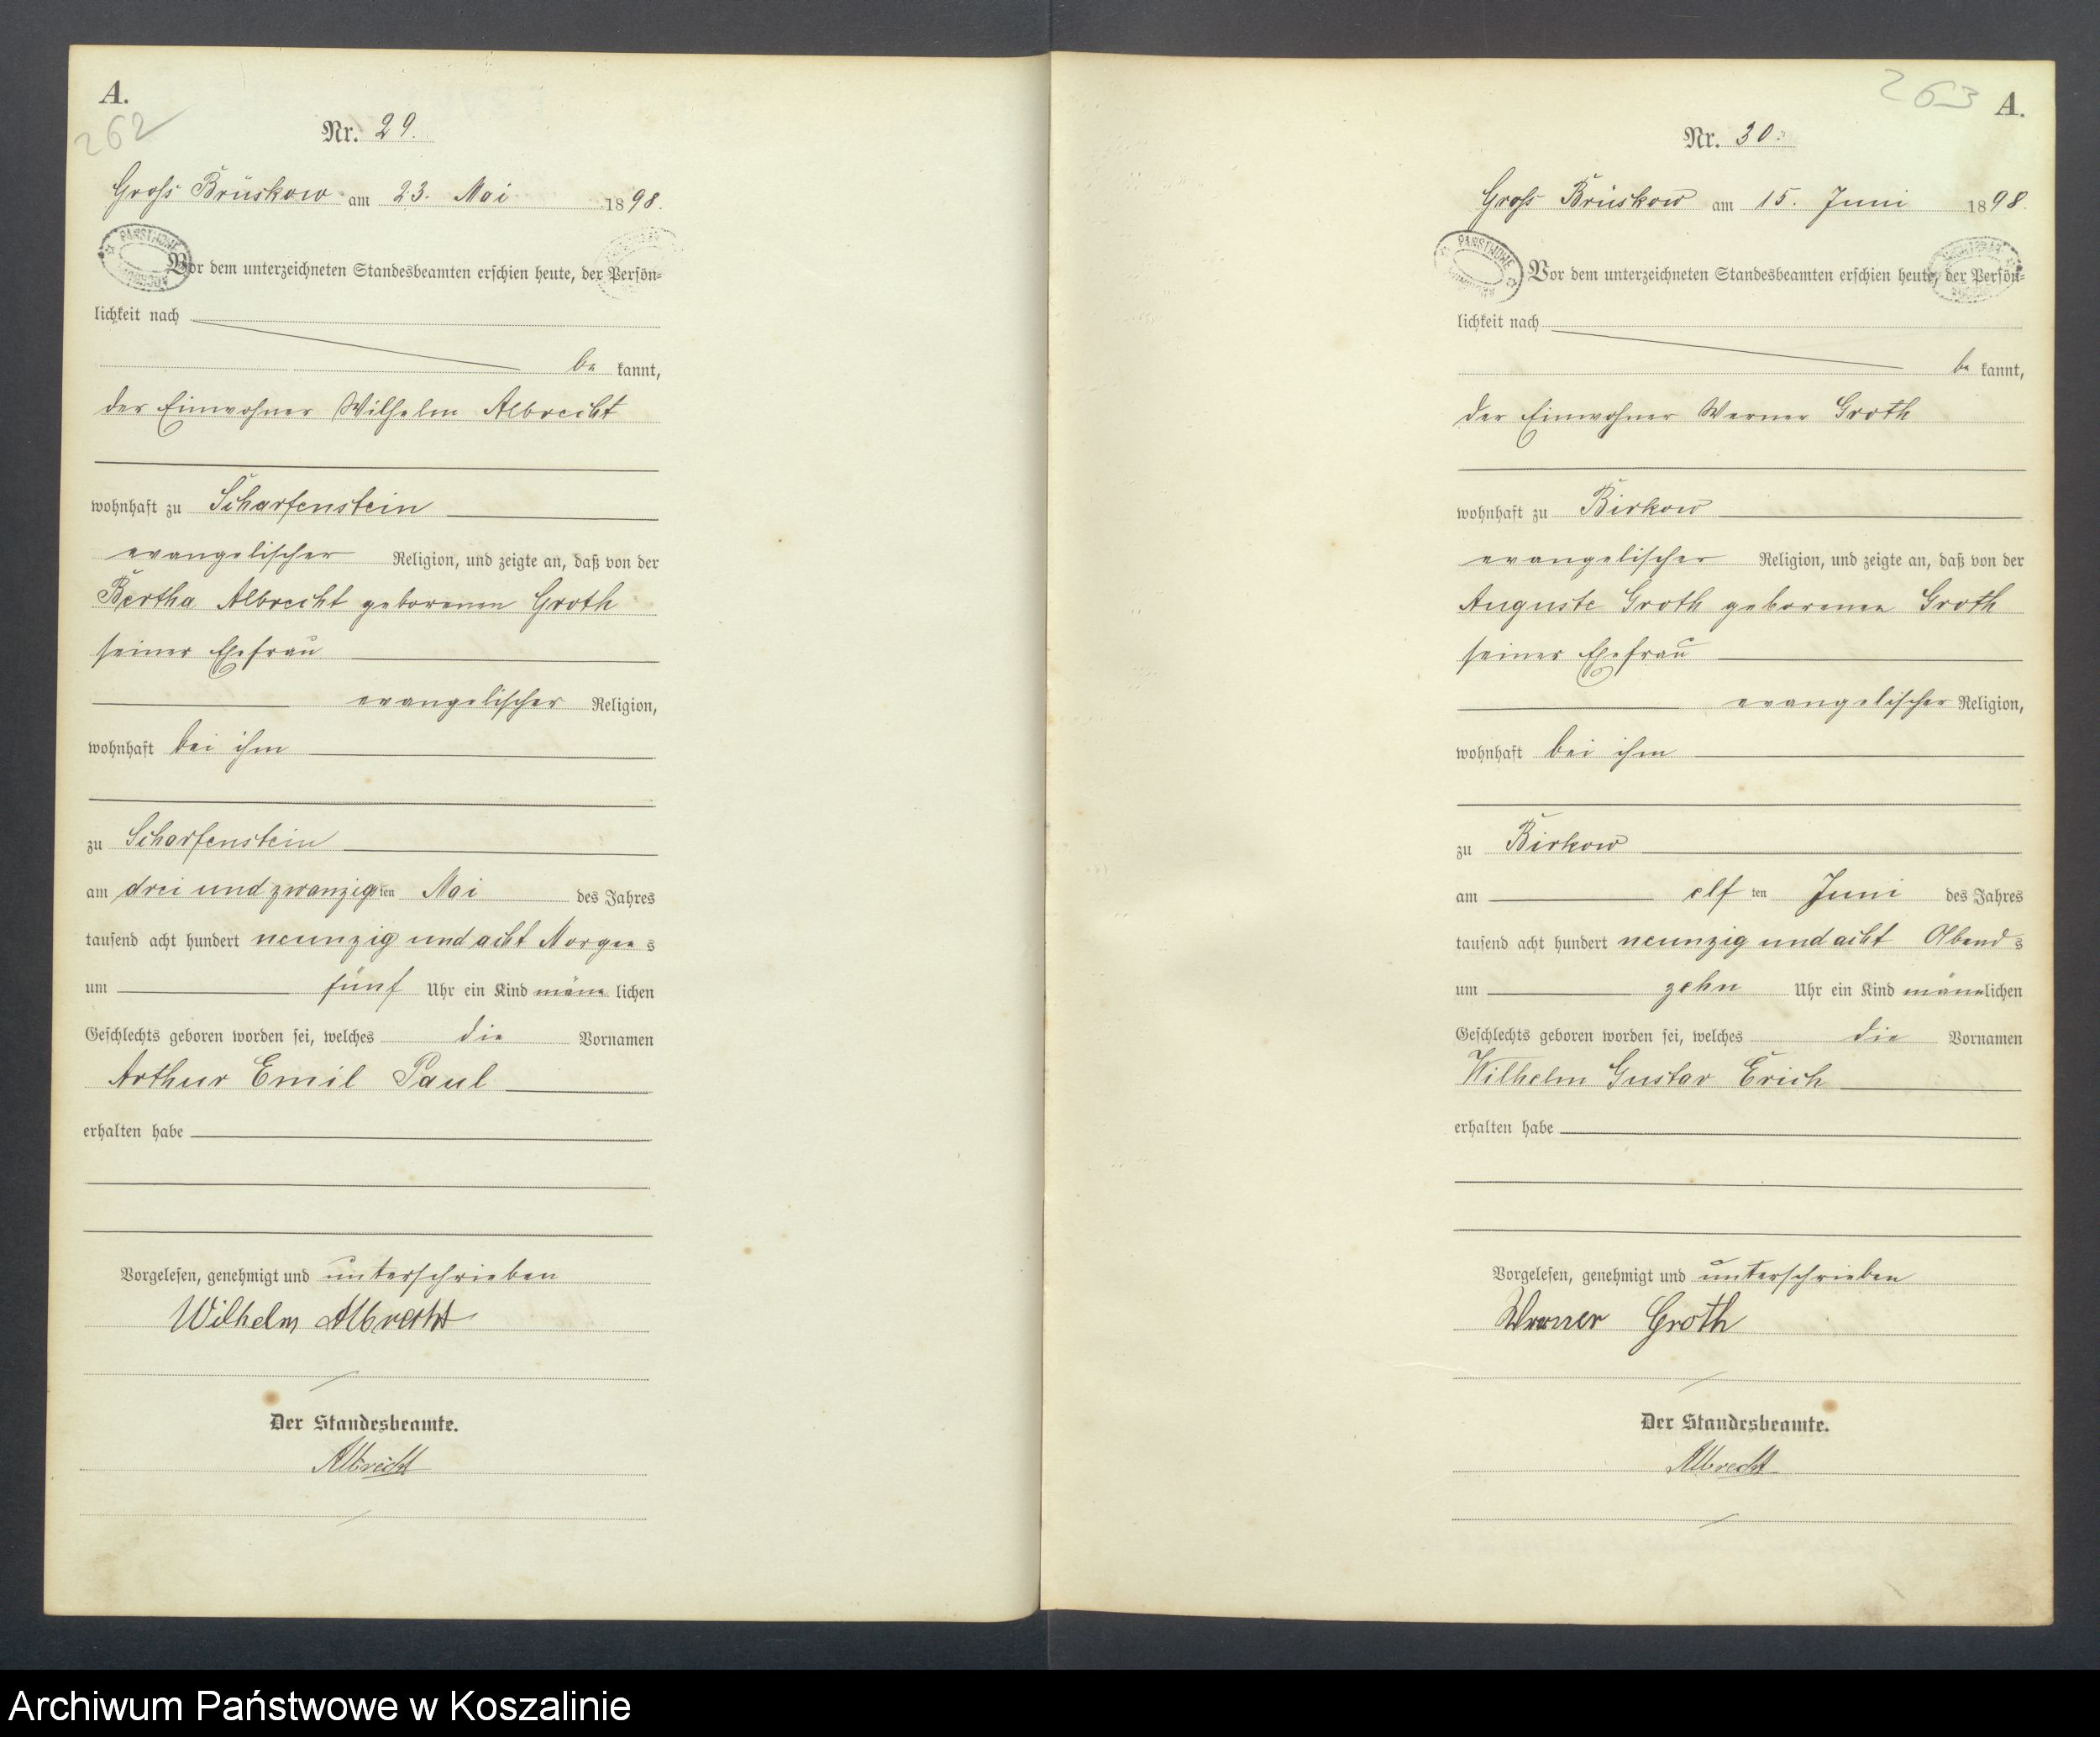 A.
262
Nr. 29.
Groß Brüskow am 23. Mai 1898.
PAŃSTWOWE
Vor dem unterzeichneten Standesbeamten erschien heute, der Persön=
lichkeit nach
be kannt,
der Einwohner Wilhelm Albrecht
wohnhaft zu Scharfenstein
evangelischer Religion, und zeigte an, daß von der
Bertha Albrecht geborenen Groth
seiner Ehefrau
evangelischer Religion,
wohnhaft bei ihm
zu Scharfenstein
am drei und zwanzigsten Mai des Jahres
tausend acht hundert neunzig und acht Morgens
um fünf Uhr ein Kind männlichen
Geschlechts geboren worden sei, welches die Vornamen
Arthur Emil Paul
erhalten habe
Vorgelesen, genehmigt und unterschrieben
Wilhelm Albrecht
Der Standesbeamte.
Albrecht
263
A.
Nr. 30.
Groß Brüskow am 15. Juni 1898.
PAŃSTWOWE
Vor dem unterzeichneten Standesbeamten erschien heute, der Persön=
lichkeit nach
be kannt,
der Einwohner Werner Groth
wohnhaft zu Birkow
evangelischer Religion, und zeigte an, daß von der
Auguste Groth geborenen Groth
seiner Ehefrau
evangelischer Religion,
wohnhaft bei ihm
zu Birkow
am elf ten Juni des Jahres
tausend acht hundert neunzig und acht Abends
um zehn Uhr ein Kind männlichen
Geschlechts geboren worden sei, welches die Vornamen
Wilhelm Gustav Erich
erhalten habe
Vorgelesen, genehmigt und unterschrieben
Werner Groth
Der Standesbeamte.
Albrecht
Archiwum Państwowe w Koszalinie